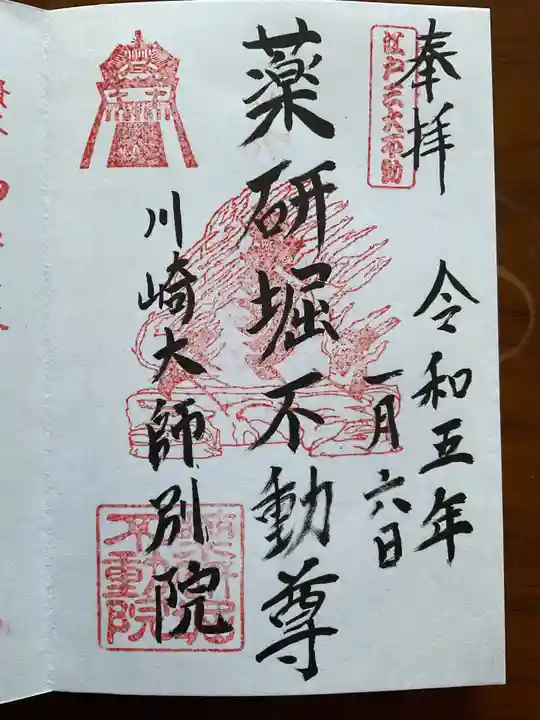 奉拝
江戸三十六不動
令和五年
一月六日
薬研堀不動尊
川崎大師別院
薬研堀
不動院